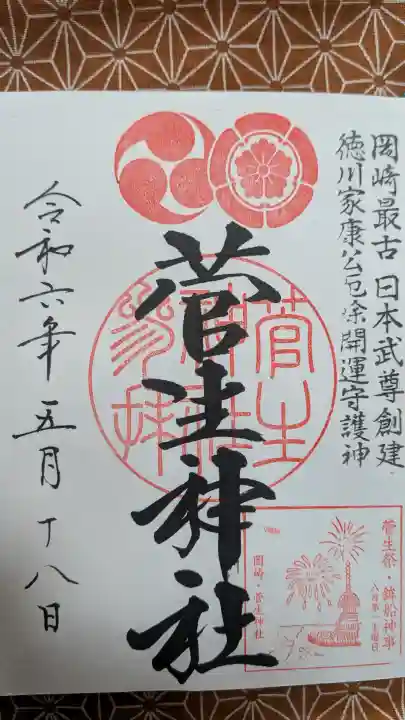 岡崎最古 日本武尊創建
徳川家康公厄除開運守護神
菅生神社
菅生
神社
参拝
菅生祭・鉾船神事
八月第一土曜日
岡崎・菅生神社
令和六年 五月 十八日